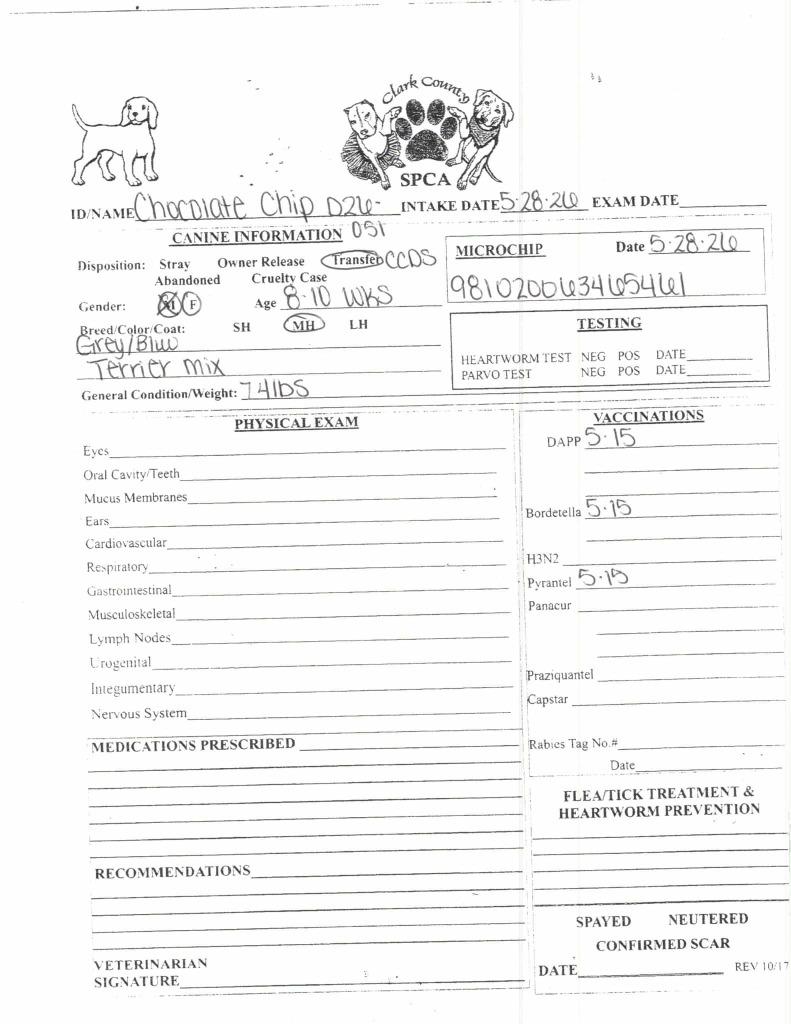 Clark County
SPCA
ID/NAME Chocolate Chip D26- INTAKE DATE 5-28-26 EXAM DATE
051
CANINE INFORMATION
Disposition: Stray Owner Release Transfer CCDS
Abandoned Cruelty Case
Gender: M F Age 8-10 WKS
Breed/Color/Coat: SH MH LH
Grey/Blue
Terrier mix
General Condition/Weight: 7.4lbs
MICROCHIP Date 5-28-26
981020063465461
TESTING
HEARTWORM TEST NEG POS DATE
PARVO TEST NEG POS DATE
PHYSICAL EXAM
Eyes
Oral Cavity/Teeth
Mucus Membranes
Ears
Cardiovascular
Respiratory
Gastrointestinal
Musculoskeletal
Lymph Nodes
Urogenital
Integumentary
Nervous System
MEDICATIONS PRESCRIBED
RECOMMENDATIONS
VETERINARIAN
SIGNATURE
VACCINATIONS
DAPP 5-15
Bordetella 5-15
H3N2
Pyrantel 5-15
Panacur
Praziquantel
Capstar
Rabies Tag No.#
Date
FLEA/TICK TREATMENT &
HEARTWORM PREVENTION
SPAYED NEUTERED
CONFIRMED SCAR
DATE REV 10/17